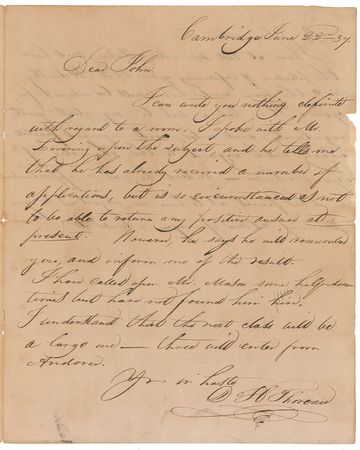 Cambridge June 22nd 37.
Dear John
I can write you nothing definite
with regard to a room. I spoke with Mr.
upon the subject, and he tells me
that he has already received a number of
applications, but is so circumstanced as not
to be able to return any positive answer at
present. However, he says he will remember
you, and inform me of the result.
I have called upon Mr. Mason some half-dozen
times but have not found him
I understand that the next class will be
a large one — three will enter from
Andover.
Yr. in haste
D H Thoreau